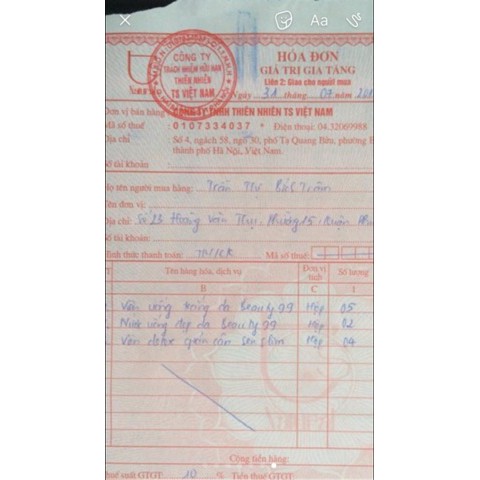 Aa
HÓA ĐƠN
GIÁ TRỊ GIA TĂNG
Liên 2: Giao cho người mua
CÔNG TY
TRÁCH NHIỆM HỮU HẠN
THIÊN NHIÊN
TS VIỆT NAM
Ngày 31 tháng 07 năm 201
Đơn vị bán hàng: CÔNG TY TNHH THIÊN NHIÊN TS VIỆT NAM
Mã số thuế : 0107334037 * Điện thoại: 04.32069988
Địa chỉ : Số 4, ngách 58, ngõ 30, phố Tạ Quang Bửu, phường B
thành phố Hà Nội, Việt Nam.
Số tài khoản :
Họ tên người mua hàng: Trần Thị Bích Trâm
Tên đơn vị:
Địa chỉ: Số 23 Hoàng Văn Thụ, Phường 15, Quận Phú
Số tài khoản:
Hình thức thanh toán: TM/CK Mã số thuế:
TT Tên hàng hóa, dịch vụ Đơn vị tính Số lượng
B C 1
Viên uống trắng da Beauty 99 Hộp 05
Nước uống đẹp da Beauty 99 Hộp 02
Viên detox giảm cân Sen Slim Hộp 04
Cộng tiền hàng:
Thuế suất GTGT: 10 % Tiền thuế GTGT: